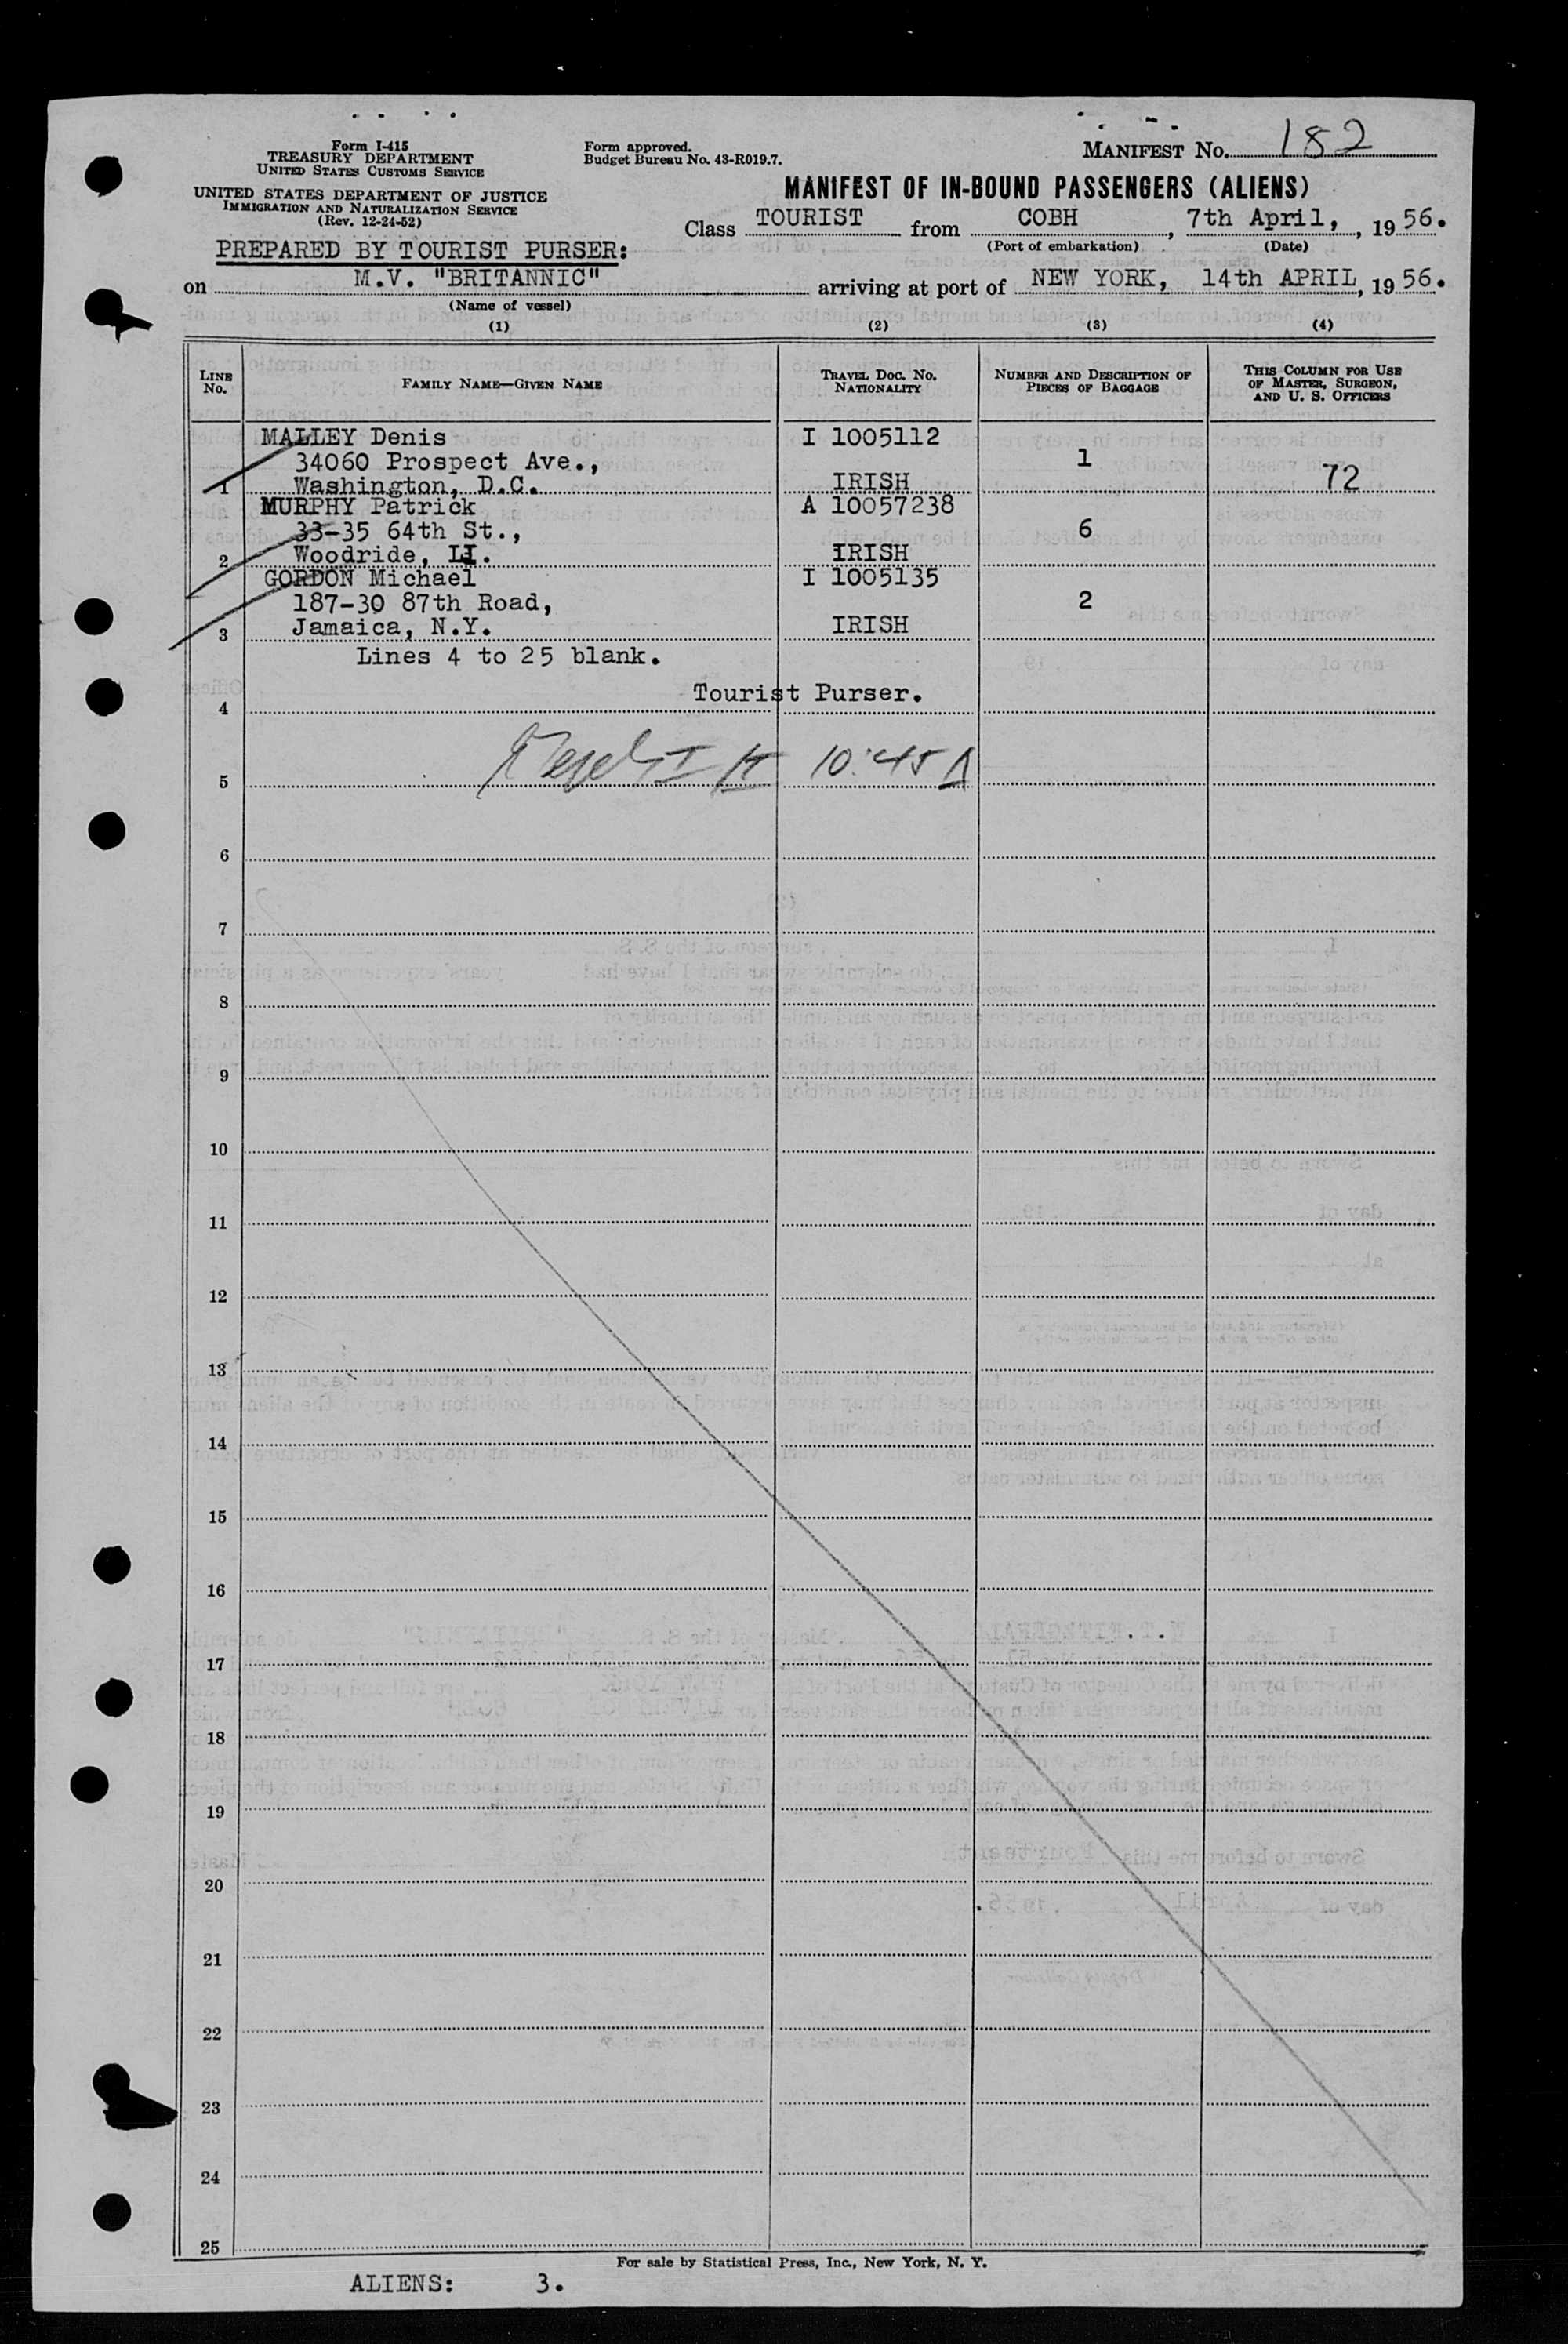 Form I-415
TREASURY DEPARTMENT
UNITED STATES CUSTOMS SERVICE
UNITED STATES DEPARTMENT OF JUSTICE
IMMIGRATION AND NATURALIZATION SERVICE
(Rev. 12-24-52)
Form approved.
Budget Bureau No. 43-R019.7.
MANIFEST NO. 182
MANIFEST OF IN-BOUND PASSENGERS (ALIENS)
Class TOURIST from COBH, 7th April, 1956.
(Port of embarkation) (Date)
PREPARED BY TOURIST PURSER:
on M.V. "BRITANNIC" arriving at port of NEW YORK, 14th APRIL, 1956.
(Name of vessel)
(1) (2) (3) (4)
LINE NO. FAMILY NAME—GIVEN NAME TRAVEL DOC. NO. NATIONALITY NUMBER AND DESCRIPTION OF PIECES OF BAGGAGE THIS COLUMN FOR USE OF MASTER, SURGEON, AND U. S. OFFICERS
MALLEY Denis I 1005112
34060 Prospect Ave., 1
1 Washington, D.C. IRISH 72
MURPHY Patrick A 10057238
33-35 64th St., 6
2 Woodride, LI. IRISH
GORDON Michael I 1005135
187-30 87th Road, 2
3 Jamaica, N.Y. IRISH
Lines 4 to 25 blank.
Tourist Purser.
4
10:45 A
5
6
7
8
9
10
11
12
13
14
15
16
17
18
19
20
21
22
23
24
25
For sale by Statistical Press, Inc., New York, N. Y.
ALIENS: 3.